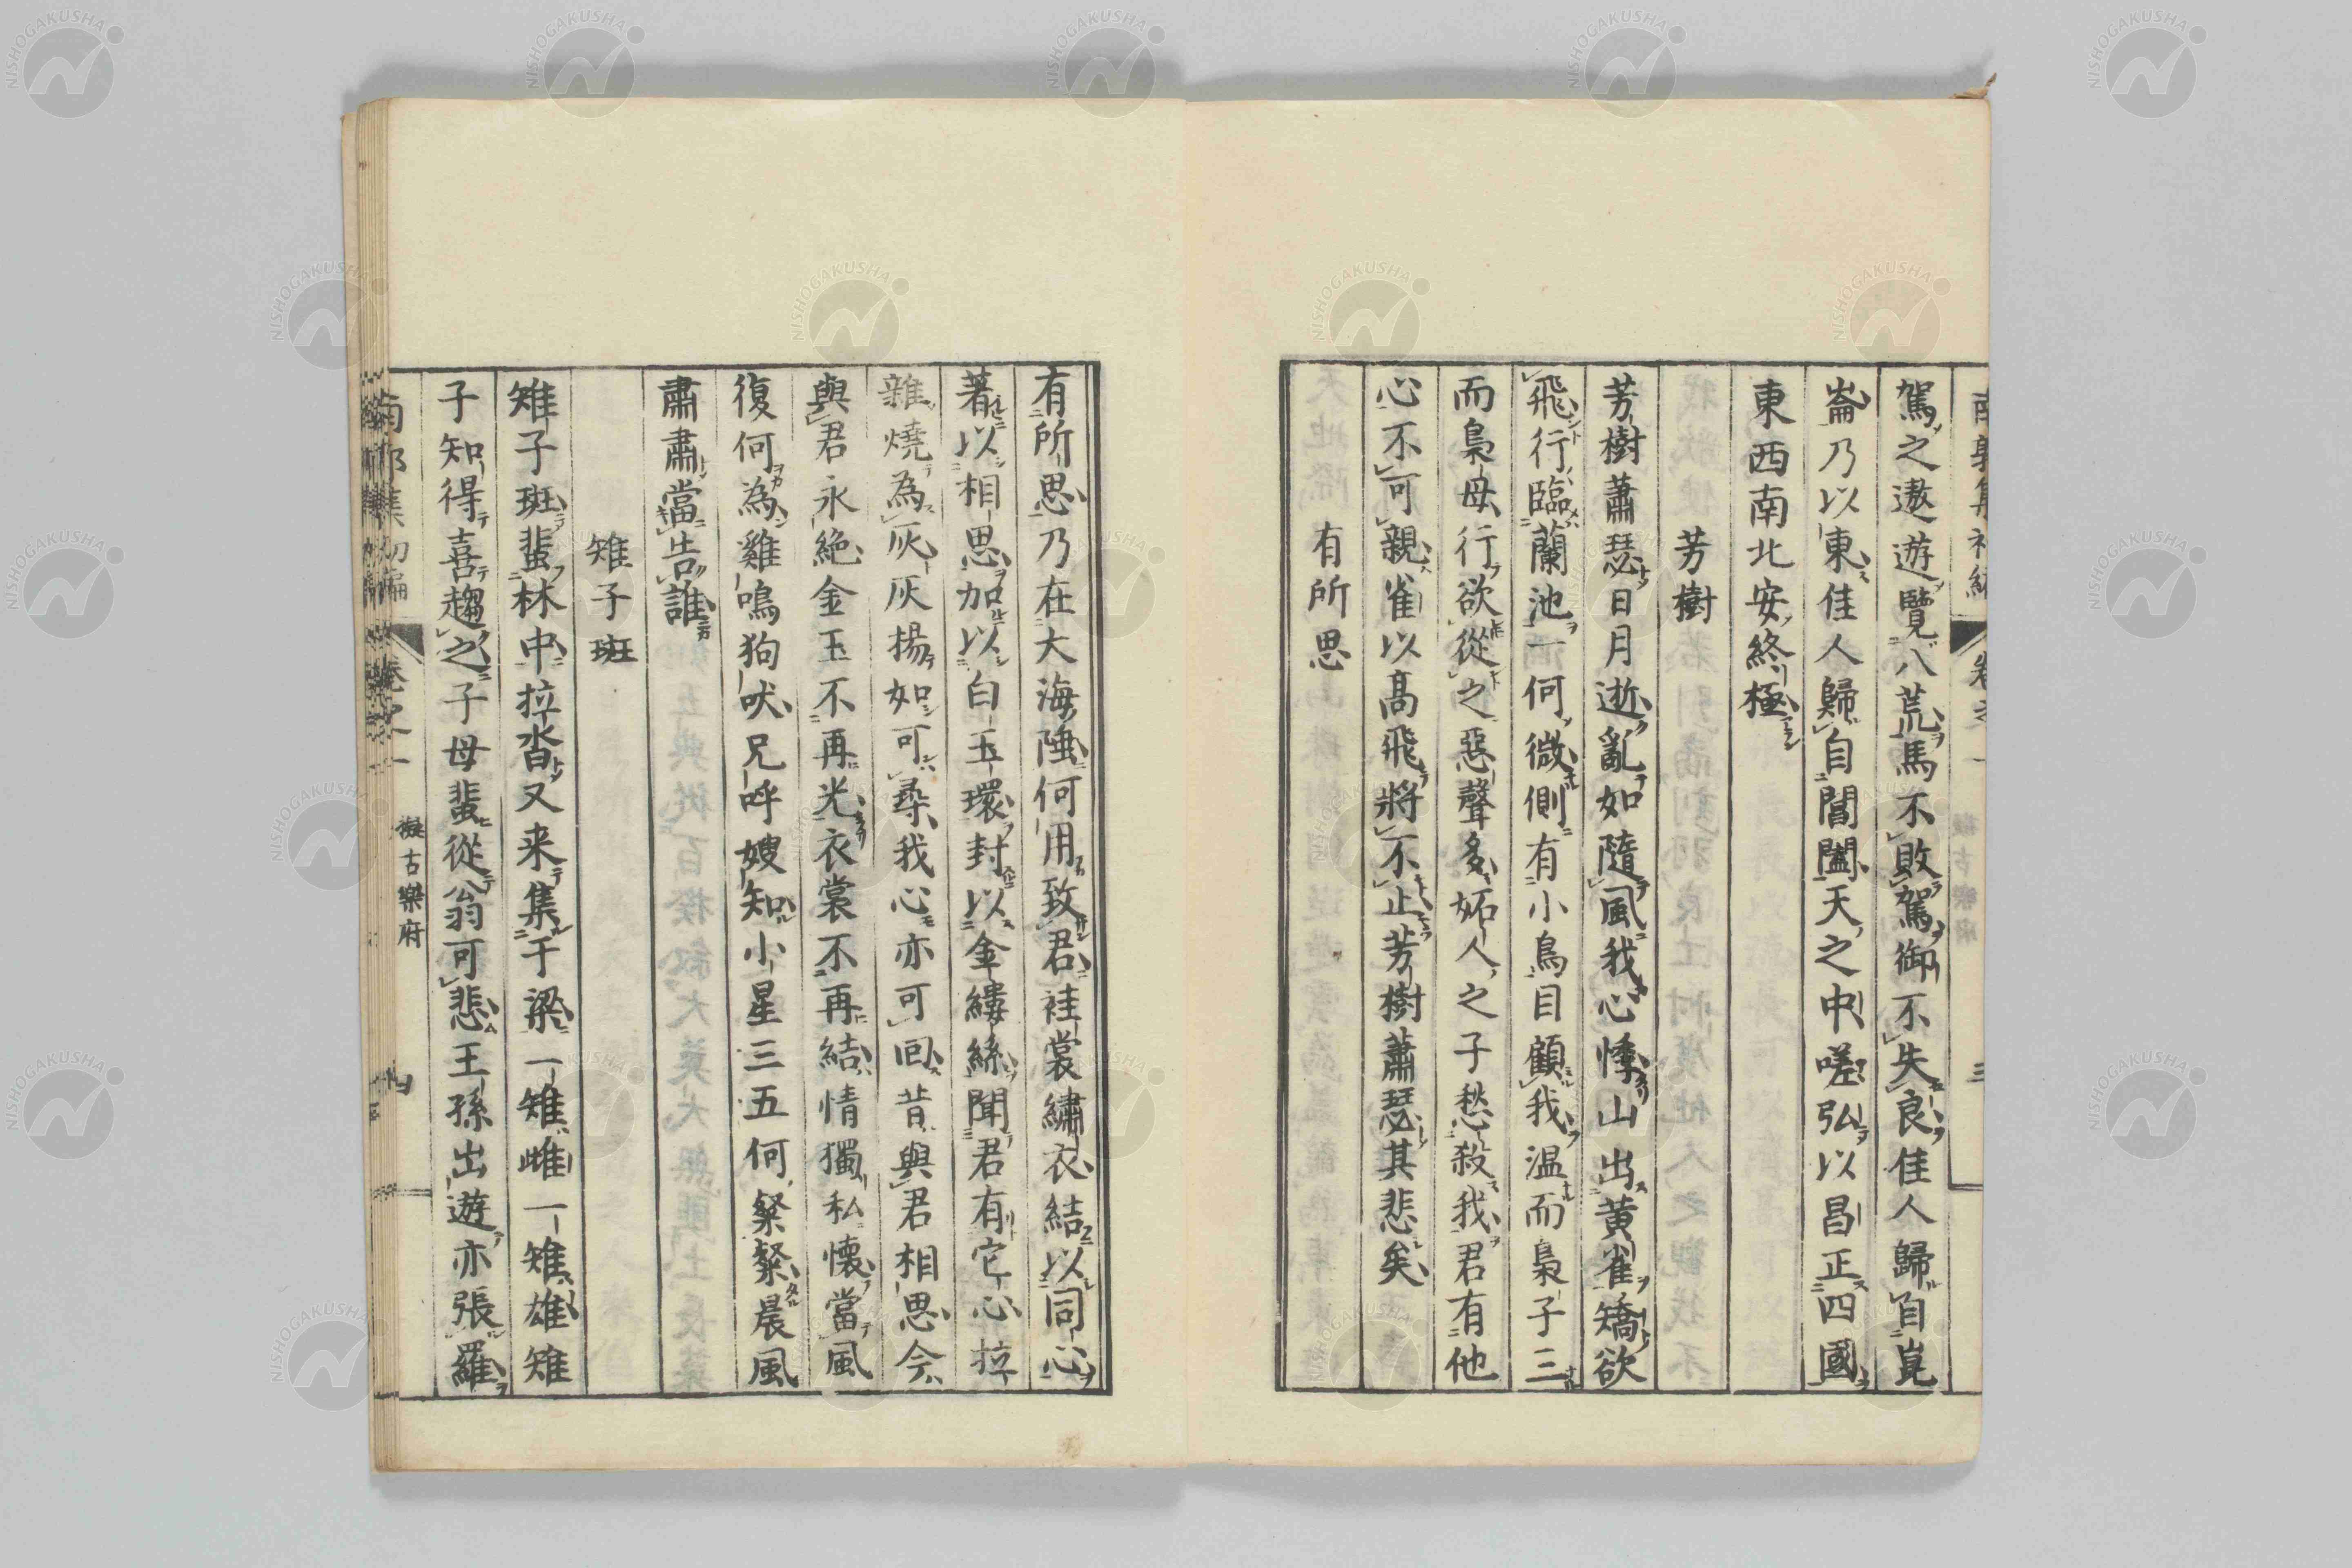 駕之遨遊覽八荒馬不敗駕御不失良佳人歸自崑
崙乃以東佳人歸自閶闔天之中嗟弘以昌正四國
東西南北安終極
芳樹
芳樹蕭瑟日月逝亂如隨風我心悸山出黄雀矯欲
飛行臨蘭池一何微側有小鳥目顧我温而梟子三
而梟母行欲從之惡聲多妬人之子愁殺我君有他
心不可親雀以高飛將不止芳樹蕭瑟其悲矣
有所思
有所思乃在大海陲何用致君袿裳繡衣結以同心
著以相思加以白玉環封以金縷絲聞君有它心拉
雜燒為灰灰揚如可尋我心亦可回昔與君相思今
與君永絶金玉不再光衣裳不再結情獨私懷當風
復何為雞鳴狗吠兄呼嫂知小星三五何粲粲晨風
肅肅當告誰
雉子班
雉子班蜚林中拉沓又来集于梁一雉雌一雉雄雉
子知得喜趨之子母蜚從翁可悲王孫出遊亦張羅
擬古樂府
NISHOGAKUSHA